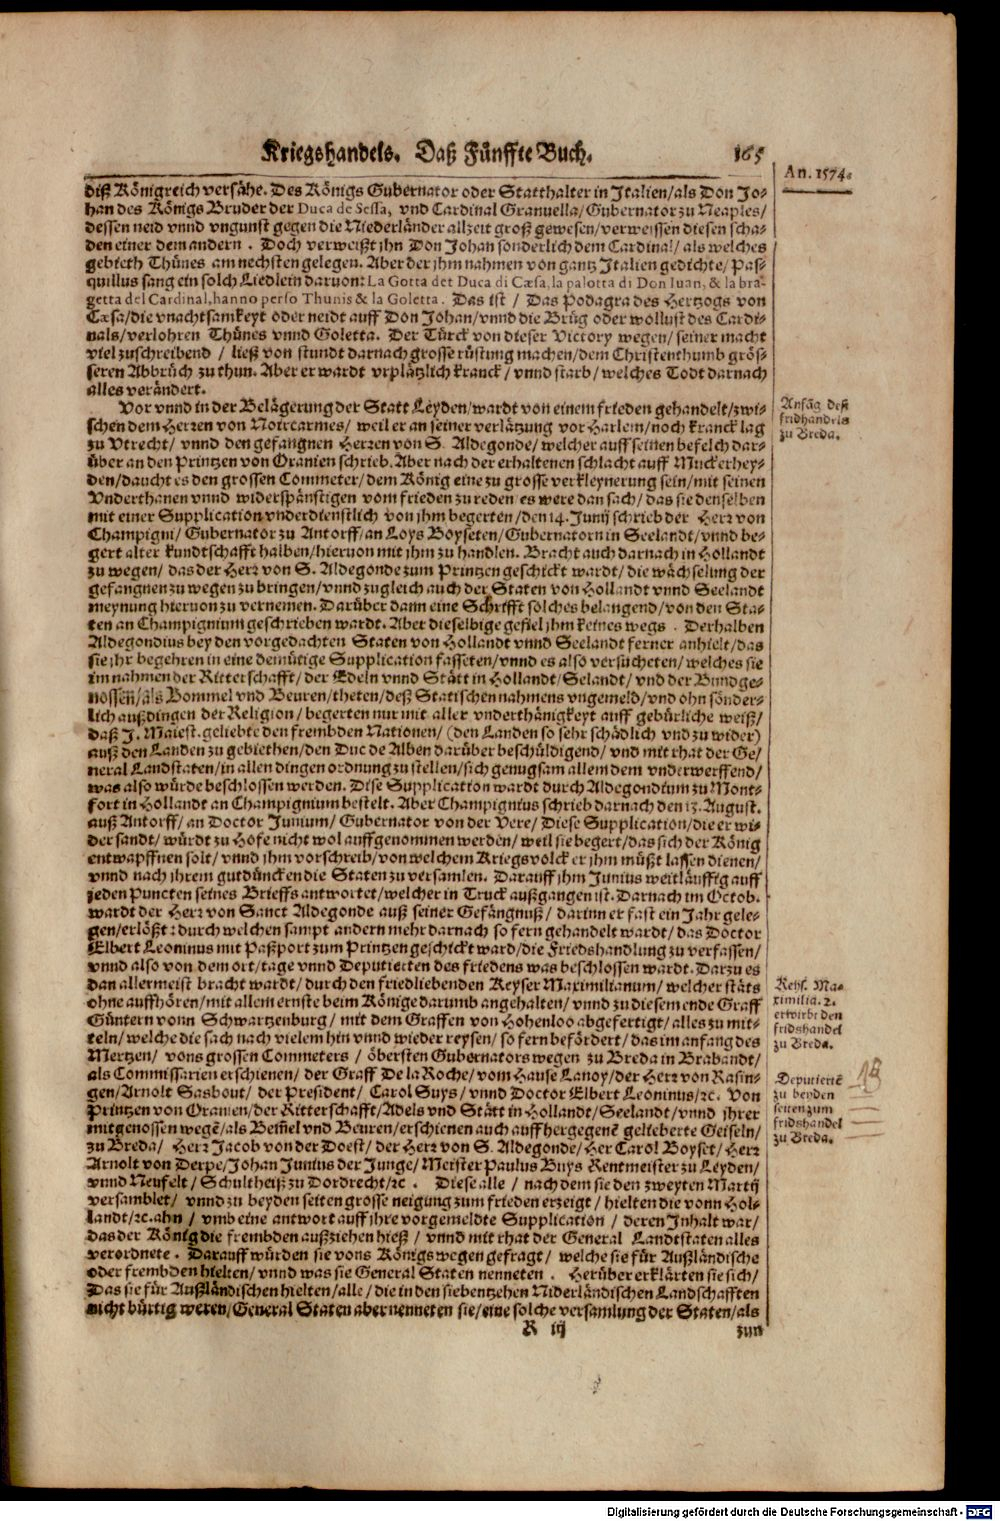 Kriegshandels. Daß Fünffte Buch. 165
An. 1574.
diß Königreich versähe. Des Königs Gubernator oder Statthalter in Italien/als Don Jo-
han des Königs Bruder der Duca de Sessa, vnd Cardinal Granuella/Gubernator zu Neaples/
dessen neid vnnd vngunst gegen die Niederländer allzeit groß gewesen/verweissen diesen scha-
den einer dem andern. Doch verweißt jhn Don Johan sonderlich dem Cardinal/als welches
gebieth Thünes am nechsten gelegen. Aber der jhm nahmen von gantz Italien gedichte/Pas-
quillus sang ein solch Liedlein daruon: La Gotta det Duca di Cæsa, la palotta di Don Iuan, & la bra-
getta del Cardinal, hanno perso Thunis & la Goletta. Das ist/Das Podagra des Hertzogs von
Cæsa/die vnachtsamkeyt oder neidt auff Don Johan/vnnd die Brüg oder wollust des Cardi-
nals/verlohren Thünes vnnd Goletta. Der Türck von dieser Victory wegen/seiner macht
viel zuschreibend/ließ von stundt darnach grosse rüstung machen/dem Christenthumb grös-
seren Abbrüch zu thun. Aber er wardt vrplätzlich kranck/vnnd starb/welches Todt darnach
alles verändert.
Vor vnnd in der Belägerung der Statt Leyden/wardt von einem frieden gehandelt/zwi-
schen dem Herren von Noircarmes/weil er an seiner verlätzung vor Harlem/noch kranck lag
zu Vtrecht/vnnd den gefangnen Herren von S. Aldegonde/welcher auff seinen befelch dar-
über an den Printzen von Oranien schrieb. Aber nach der erhaltenen schlacht auff Muckerhey-
den/daucht es den grossen Commeter/dem König eine zu grosse verkleynerung sein/mit seinen
Vnderthanen vnnd widerspänstigen vom frieden zu reden es were dan sach/das sie denselben
mit einer Supplication vnderdienstlich von jhm begerten/den 14. Junij schrieb der Herr von
Champigni/Gubernator zu Antorff/an Loys Boyseten/Gubernatorn in Seelandt/vnnd be-
gert alter kundtschafft halben/hieruon mit jhm zu handlen. Bracht auch darnach in Hollandt
zu wegen/das der Herr von S. Aldegonde zum Printzen geschickt wardt/die wächselung der
gefangnen zu wegen zu bringen/vnnd zugleich auch der Staten von Hollandt vnnd Seelandt
meynung hieruon zu vernemen. Darüber dann eine Schrifft solches belangend/von den Sta-
ten an Champignium geschrieben wardt. Aber dieselbige gefiel jhm keines wegs. Derhalben
Aldegondius bey den vorgedachten Staten von Hollandt vnnd Seelandt ferner anhielt/das
sie jhr begehren in eine demütige Supplication fasseten/vnnd es also versücheten/welches sie
im nahmen der Ritterschafft/der Edeln vnnd Stätt in Hollandt/Selandt/vnd der Bundge-
nossen/als Bommel vnd Beuren/theten/deß Statischen nahmens vngemeld/vnd ohn sönder-
lich außdingen der Religion/begerten nur mit aller vnderthänigkeyt auff gebürliche weiß/
daß J. Maiest. geliebte den frembden Nationen/(den Landen so sehr schädlich vnd zu wider)
auß den Landen zu gebiethen/den Duc de Alben darüber beschüldigend/vnd mit rhat der Ge-
neral Landstaten/in allen dingen ordnung zu stellen/sich genugsam allem dem vnderwerffend/
was also würde beschlossen werden. Dise Supplication wardt durch Aldegondium zu Mont-
fort in Hollandt an Champignium bestelt. Aber Champignius schrieb darnach den 13. August.
auß Antorff/an Doctor Junium/Gubernator von der Vere/Diese Supplication/die er wi-
der sandt/würdt zu Hofe nicht wol auffgenommen werden/weil sie begert/das sich der König
entwapffnen solt/vnnd jhm vorschreib/von welchem Kriegsvolck er jhm müßt lassen dienen/
vnnd nach jhrem gutdüncken die Staten zu versamlen. Darauff jhm Junius weitläuffig auff
jeden Puncten seines Brieffs antwortet/welcher in Truck außgangen ist. Darnach im Octob.
wardt der Herr von Sanct Aldegonde auß seiner Gefängnuß/darinn er fast ein Jahr gele-
gen/erlößt: durch welchen sampt andern mehr darnach so fern gehandelt wardt/das Doctor
Elbert Leoninus mit Paßport zum Printzen geschickt ward/die Friedshandlung zu verfassen/
vnnd also von dem ort/tage vnnd Deputierten des friedens was beschlossen wardt. Darzu es
dan allermeist bracht wardt/durch den friedliebenden Keyser Maximilianum/welcher stäts
ohne auffhören/mit allem ernste beim Könige darumb angehalten/vnnd zu diesem ende Graff
Güntern vonn Schwartzenburg/mit dem Graffen von Hohenloo abgefertigt/alles zu mit-
teln/welche die sach nach vielem hin vnnd wieder reysen/so fern befördert/das im anfang des
Mertzen/vons grossen Commeters/öbersten Gubernators wegen zu Breda in Brabandt/
als Commissarien erschienen/der Graff De la Roche/vom Hause Lanoy/der Herr von Rasin-
gen/Arnolt Sasbout/der President/Carol Suys/vnnd Doctor Elbert Leoninus/rc. Von
Printzen von Oranien/der Ritterschafft/Adels vnd Stätt in Hollandt/Seelandt/vnnd jhrer
mitgenossen wegē/als Bommel vnd Beuren/erschienen auch auff hergegenē gelieberte Geiseln/
zu Breda/Herr Jacob von der Doest/der Herr von S. Aldegonde/Her Carol Boyset/Herr
Arnolt von Derpe/Johan Junius der Junge/Meister Paulus Buys Rentmeister zu Leyden/
vnnd Neufelt/Schultheiß zu Dordrecht/rc. Diese alle/nach dem sie den zweyten Martij
versamblet/vnnd zu beyden seiten grosse neigung zum frieden erzeigt/hielten die vonn Hol-
landt/rc. ahn/vmb eine antwort auff jhre vorgemeldte Supplication/deren Inhalt war/
das der König die frembden außziehen hieß/vnnd mit rhat der General Landtstaten alles
verordnete. Darauff würden sie vons Königs wegen gefragt/welche sie für Außländische
oder frembden hielten/vnnd was sie General Staten nenneten. Herüber erklärten sie sich/
Das sie für Außländischen hielten/alle/die in den siebentzehen Niderländischen Landschafften
nicht bürtig weren/General Staten aber nenneten sie/eine solche versamlung der Staten/als
R iij zun
Anfāg deß
fridhandels
zu Breda.
Keys. Ma-
ximilia. 2.
erwirbt den
fridshandel
zu Breda.
Deputiertē
zu beyden
seiten zum
fridshandel
zu Breda.
Digitalisierung gefördert durch die Deutsche Forschungsgemeinschaft - DFG